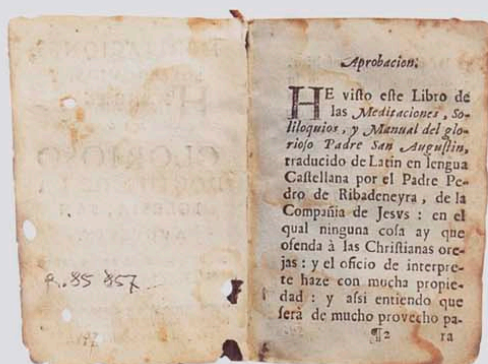 R. 85 857
Aprobacion.
HE visto este Libro de
las Meditaciones, So-
liloquios, y Manual del glo-
rioso Padre San Augustin,
traducido de Latin en lengua
Castellana por el Padre Pe-
dro de Ribadeneyra, de la
Compañia de Jesvs : en el
qual ninguna cosa ay que
ofenda à las Christianas ore-
jas : y el oficio de interpre-
te haze con mucha propie-
dad : y assi entiendo que
serà de mucho provecho pa-
¶2 ra